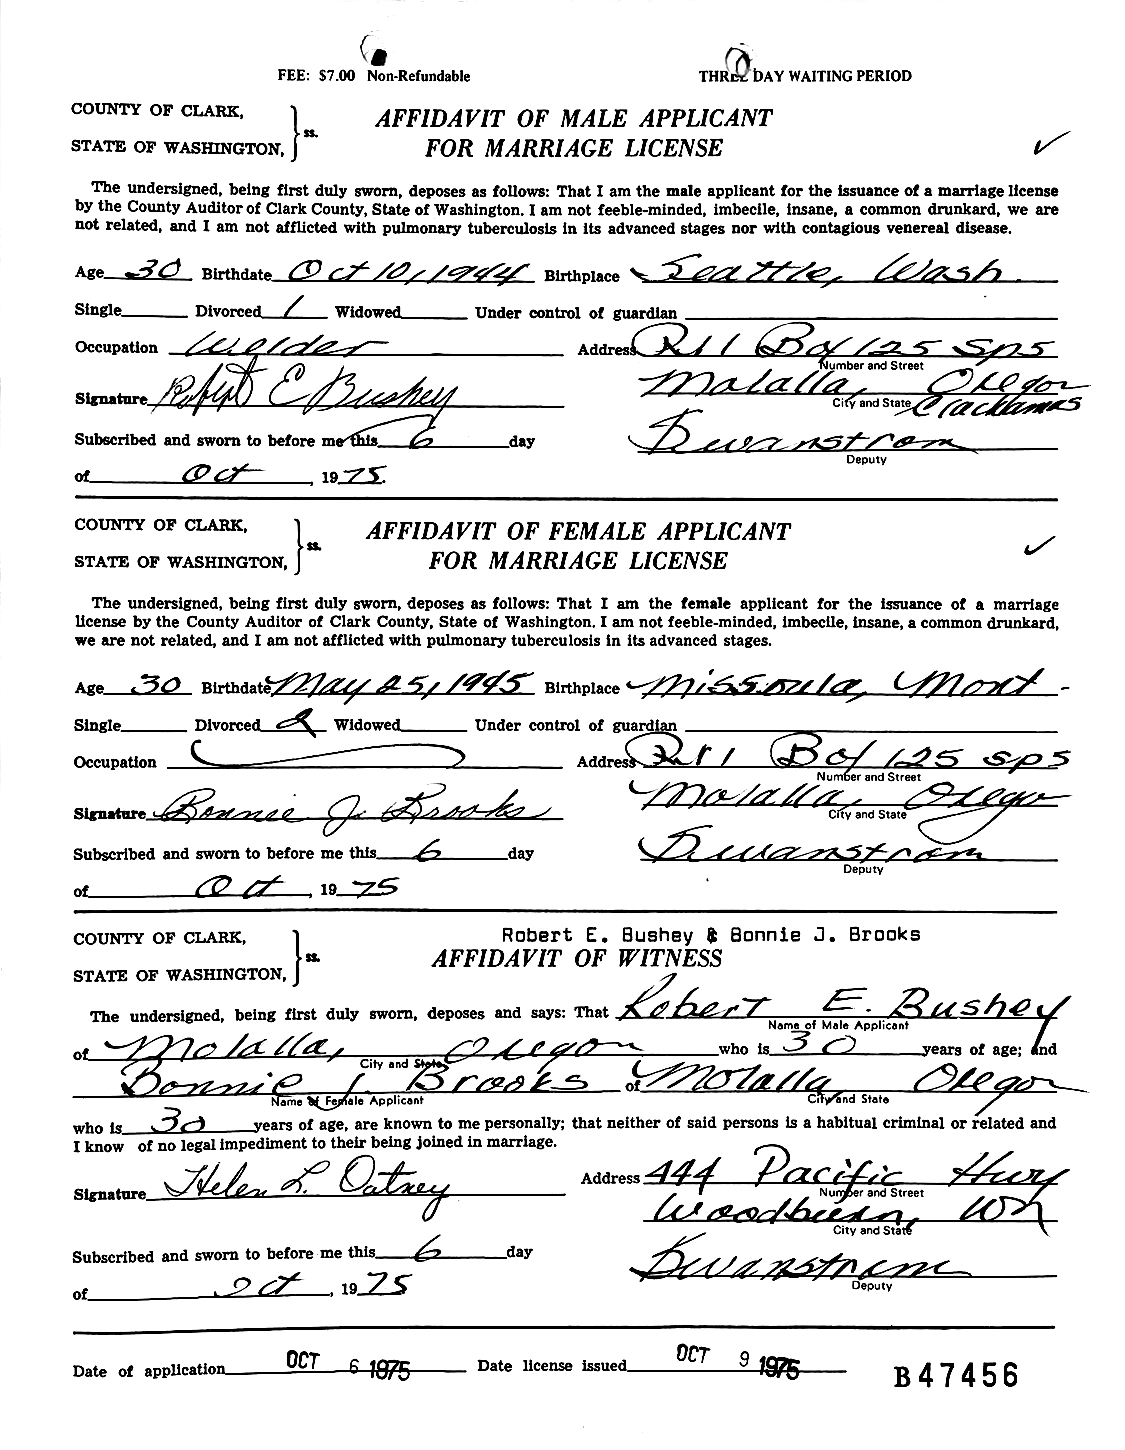 FEE: $7.00 Non-Refundable THREE DAY WAITING PERIOD
COUNTY OF CLARK,
STATE OF WASHINGTON, ss.
AFFIDAVIT OF MALE APPLICANT
FOR MARRIAGE LICENSE
The undersigned, being first duly sworn, deposes as follows: That I am the male applicant for the issuance of a marriage license
by the County Auditor of Clark County, State of Washington. I am not feeble-minded, imbecile, insane, a common drunkard, we are
not related, and I am not afflicted with pulmonary tuberculosis in its advanced stages nor with contagious venereal disease.
Age 30 Birthdate Oct 10, 1944 Birthplace Seattle, Wash.
Single Divorced 1 Widowed Under control of guardian
Occupation Welder Address Rt 1 Box 125 Sp5
Number and Street
Signature Robert E Bushey Molalla, Oregon
City and State Clackamas
Subscribed and sworn to before me this 6 day Swanstrom
Deputy
of Oct, 1975.
COUNTY OF CLARK,
STATE OF WASHINGTON, ss.
AFFIDAVIT OF FEMALE APPLICANT
FOR MARRIAGE LICENSE
The undersigned, being first duly sworn, deposes as follows: That I am the female applicant for the issuance of a marriage
license by the County Auditor of Clark County, State of Washington. I am not feeble-minded, imbecile, insane, a common drunkard,
we are not related, and I am not afflicted with pulmonary tuberculosis in its advanced stages.
Age 30 Birthdate May 25, 1945 Birthplace Missoula, Mont -
Single Divorced 2 Widowed Under control of guardian
Occupation Address Rt 1 Box 125 Sp5
Number and Street
Signature Bonnie J. Brooks Molalla, Oregon
City and State
Subscribed and sworn to before me this 6 day Swanstrom
Deputy
of Oct, 1975
COUNTY OF CLARK,
STATE OF WASHINGTON, ss.
Robert E. Bushey & Bonnie J. Brooks
AFFIDAVIT OF WITNESS
The undersigned, being first duly sworn, deposes and says: That Robert E. Bushey
Name of Male Applicant
of Molalla, Oregon who is 30 years of age; and
City and State
Bonnie J. Brooks of Molalla, Oregon
Name of Female Applicant City and State
who is 30 years of age, are known to me personally; that neither of said persons is a habitual criminal or related and
I know of no legal impediment to their being joined in marriage.
Signature Helen L. Oatney Address 444 Pacific Hwy
Number and Street
Woodburn, Wn
City and State
Subscribed and sworn to before me this 6 day Swanstrom
Deputy
of Oct, 1975
Date of application OCT 6 1975 Date license issued OCT 9 1975 B47456